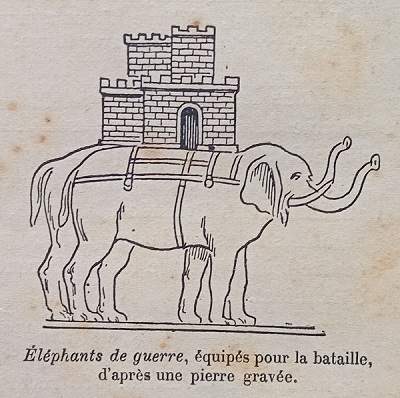 Éléphants de guerre, équipés pour la bataille,
d'après une pierre gravée.